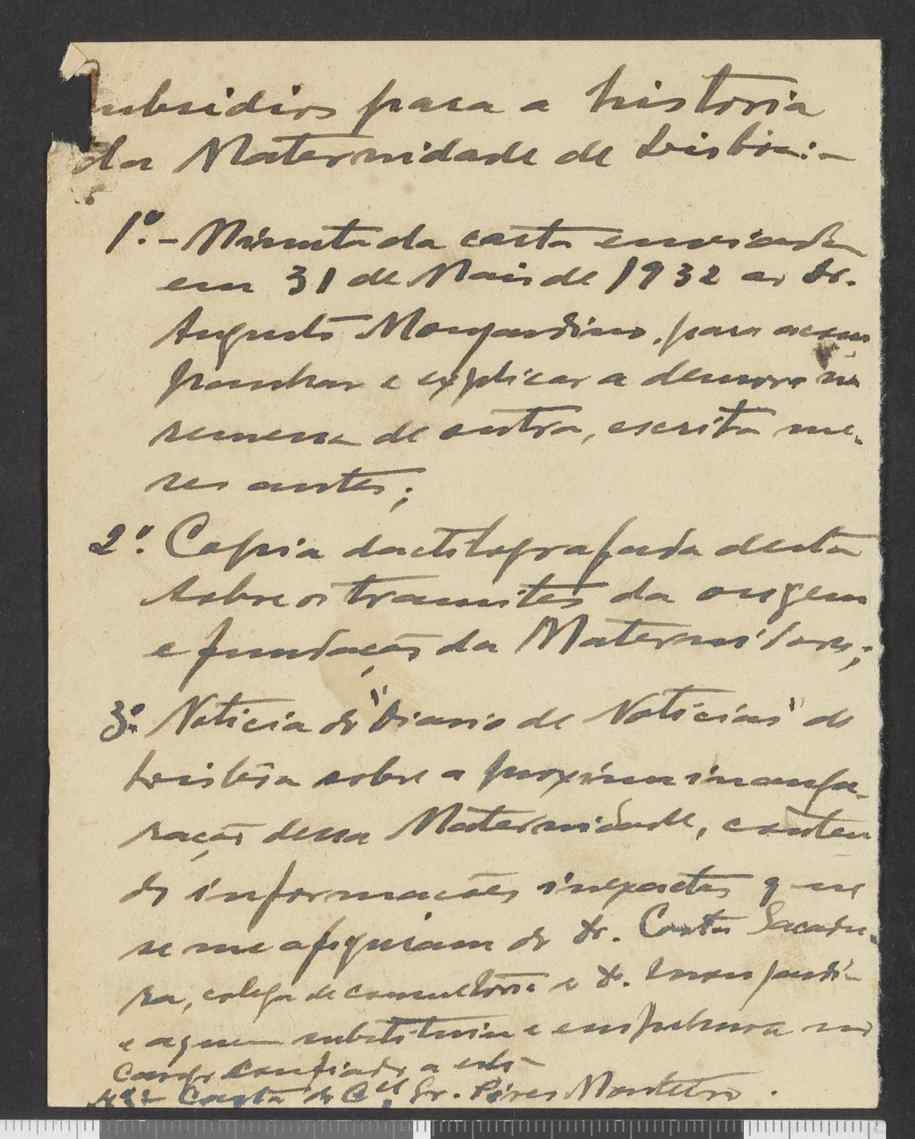 ubsidios para a historia
da Maternidade de Lisbôa:-
1º.- Minuta da carta enviada
em 31 de Maio de 1932 ao Dr.
Augusto Monjardino, para acom
panhar e explicar a demora na
remessa de outra, escrita me-
ses antes;
2º. Copia dactilografada desta
sobre os tramites da origem
e fundação da Maternidade;
3º. Noticia do "Diario de Noticias" de
Lisbôa sobre a proxima inaugu-
ração dessa Maternidade, conten
do informações inexactas que
se me afiguram do Dr. Costa Sacadu-
ra, colega de consultorio e Dr. Monjardi-
e a quem substituiu e em
cargo confiado a este
4º- Carta do Cel. Sr. Pires Monteiro.